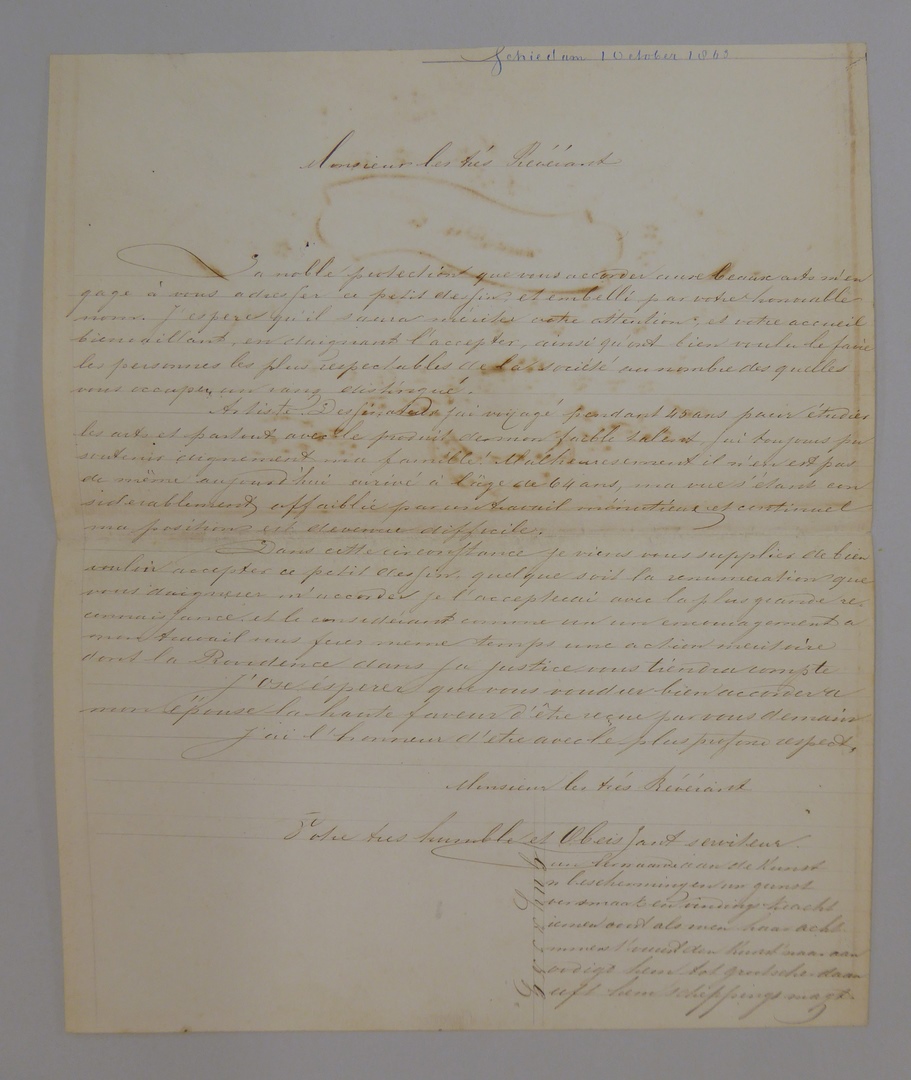 Schiedam 1 October 1863
Monsieur les très Révérant
La noble protection que vous accorder aux beaux arts m'en
gage à vous adresser ce petit dessin, et embelli par votre honorable
nom. J'esperes qu'il saura mériter votre attention, et votre accueil
bienvaillant, en daignant l'accepter, ainsi qu'ont bien voulu le faire
les personnes les plus respectables de la société au nombre des quelles
vous occuper un rang distingué.
Artiste Dessinateur j'ai voyagé pendant 45 ans pour étudier
les arts et partout avec le produit de mon faible talent, j'ai toujours pu
soutenir dignement ma famille. Malheuresement il n'en est pas
de même aujourd'hui arrivé à l'âge de 64 ans, ma vue s'étant con
sidérablement affaiblie par un travail minutieux et continuel
ma position est devenue difficile.
Dans cette circonstance je viens vous supplier de bien
vouloir accepter ce petit dessin, quelque soit la renumeration que
vous daignerer m'accorder je l'accepterai avec la plus grande re.
connaissance. et le considerant comme un encouragement a
mon travail vous ferer meme temps une action meritoire
dont la Providence dans sa justice vous tiendra compte
J'ose ésperer que vous voudrer bien accorder a
mon épouse la haute faveur d'être reçue par vous demain
J'ai l'honneur d'etre avec le plus profond respect,
Monsieur les très Révérant
Votre tres humble et Obeissant serviteur.
aan de Kunst
bescherming en gunst
versmaat en vindings kracht
als men haar acht
Kunst naar aan
hem tot grootsche daan
hem scheppings magt.